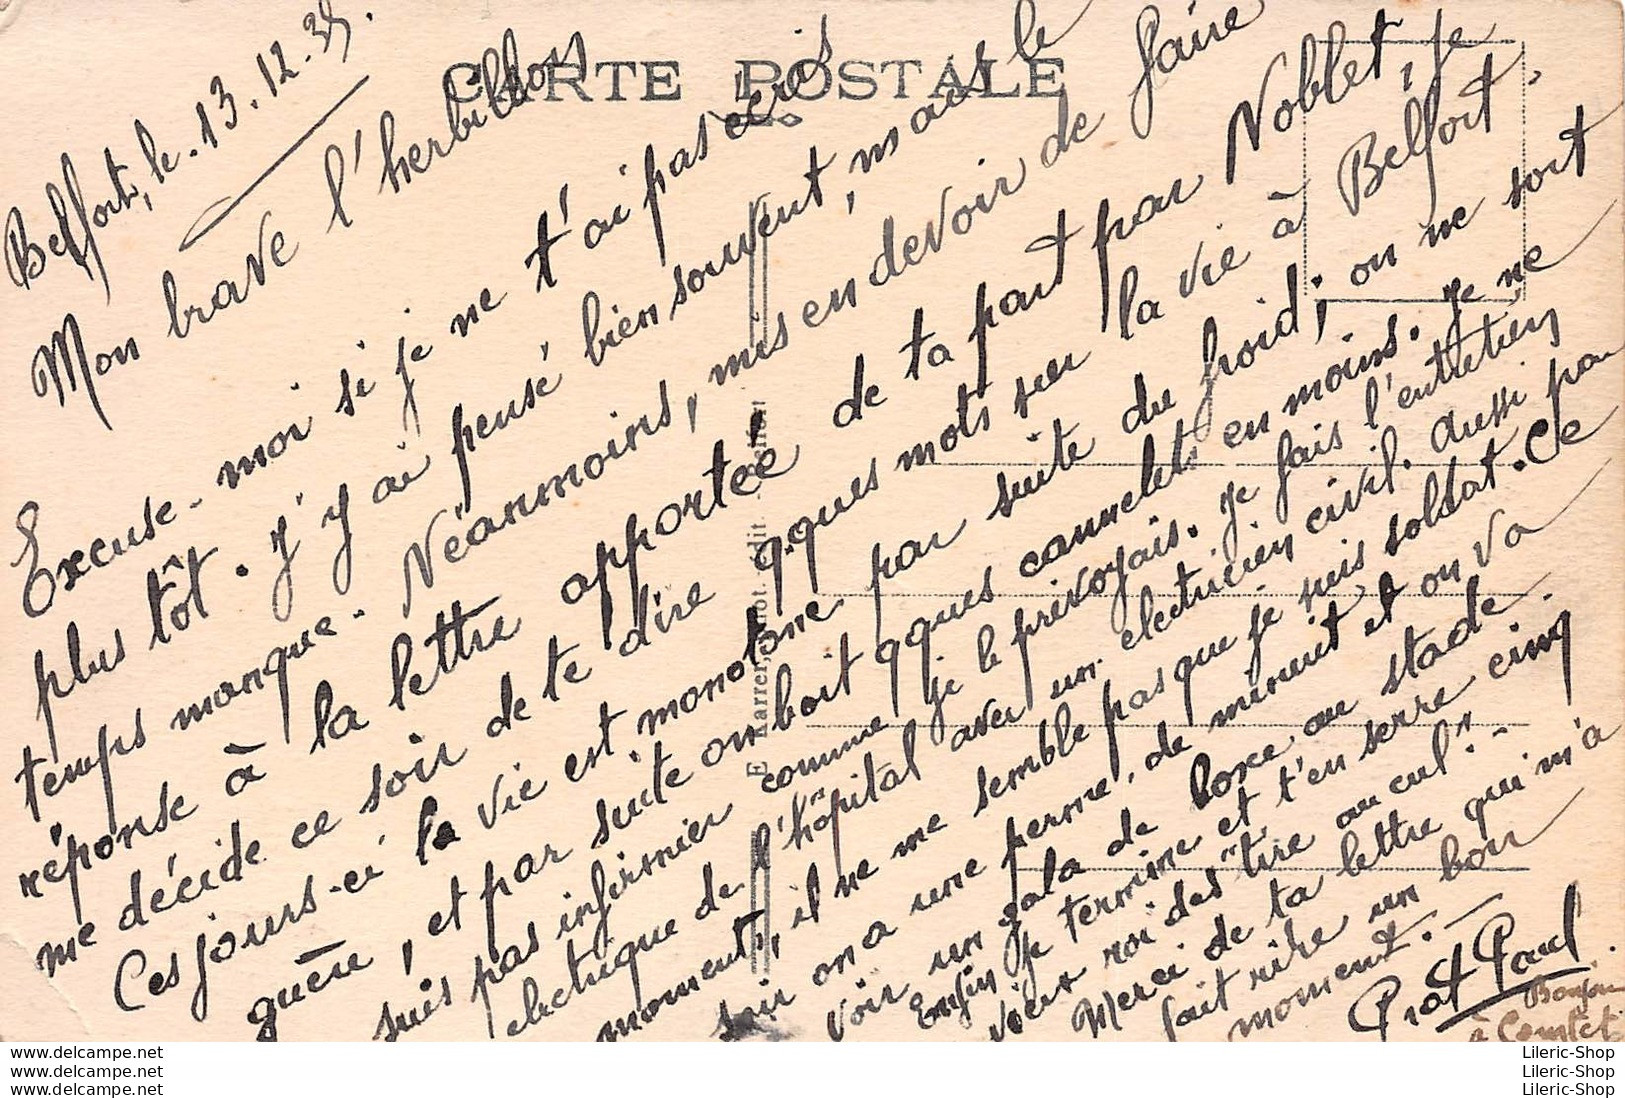 CARTE POSTALE
Belfort, le 13.12.35
Mon brave l'herbillon
Excuse-moi si je ne t'ai pas écris
plus tôt. J'y ai pensé bien souvent, mais le
temps manque. Néanmoins, mis en devoir de faire
réponse à la lettre apportée de ta part par Noblet, je
me décide ce soir de te dire qques mots sur la vie à Belfort.
Ces jours-ci la vie est monotone par suite du froid; on ne sort
guère, et par suite on boit qques cannelets en moins. Je ne
suis pas infirmier comme je le prévoyais. Je fais l'entretien
electrique de l'hôpital avec un electricien civil. aussi par
moments, il ne me semble pas que je suis soldat. Ce
soir on a une perme, de minuit et on va
voir un gala de boxe au stade.
Enfin je termine et t'en serre cinq
vieux roi des "tire au cul".
Merci de ta lettre qui m'a
fait rire un bon
moment.
Prat Paul
Bonjour
à Comtet
E. Harrer, phot. édit. Belfort
Lileric-Shop
Lileric-Shop
Lileric-Shop
les numéros ne font pas partie de l'image originale
les numéros ne font pas partie de l'image originale
les numéros ne font pas partie de l'image originale